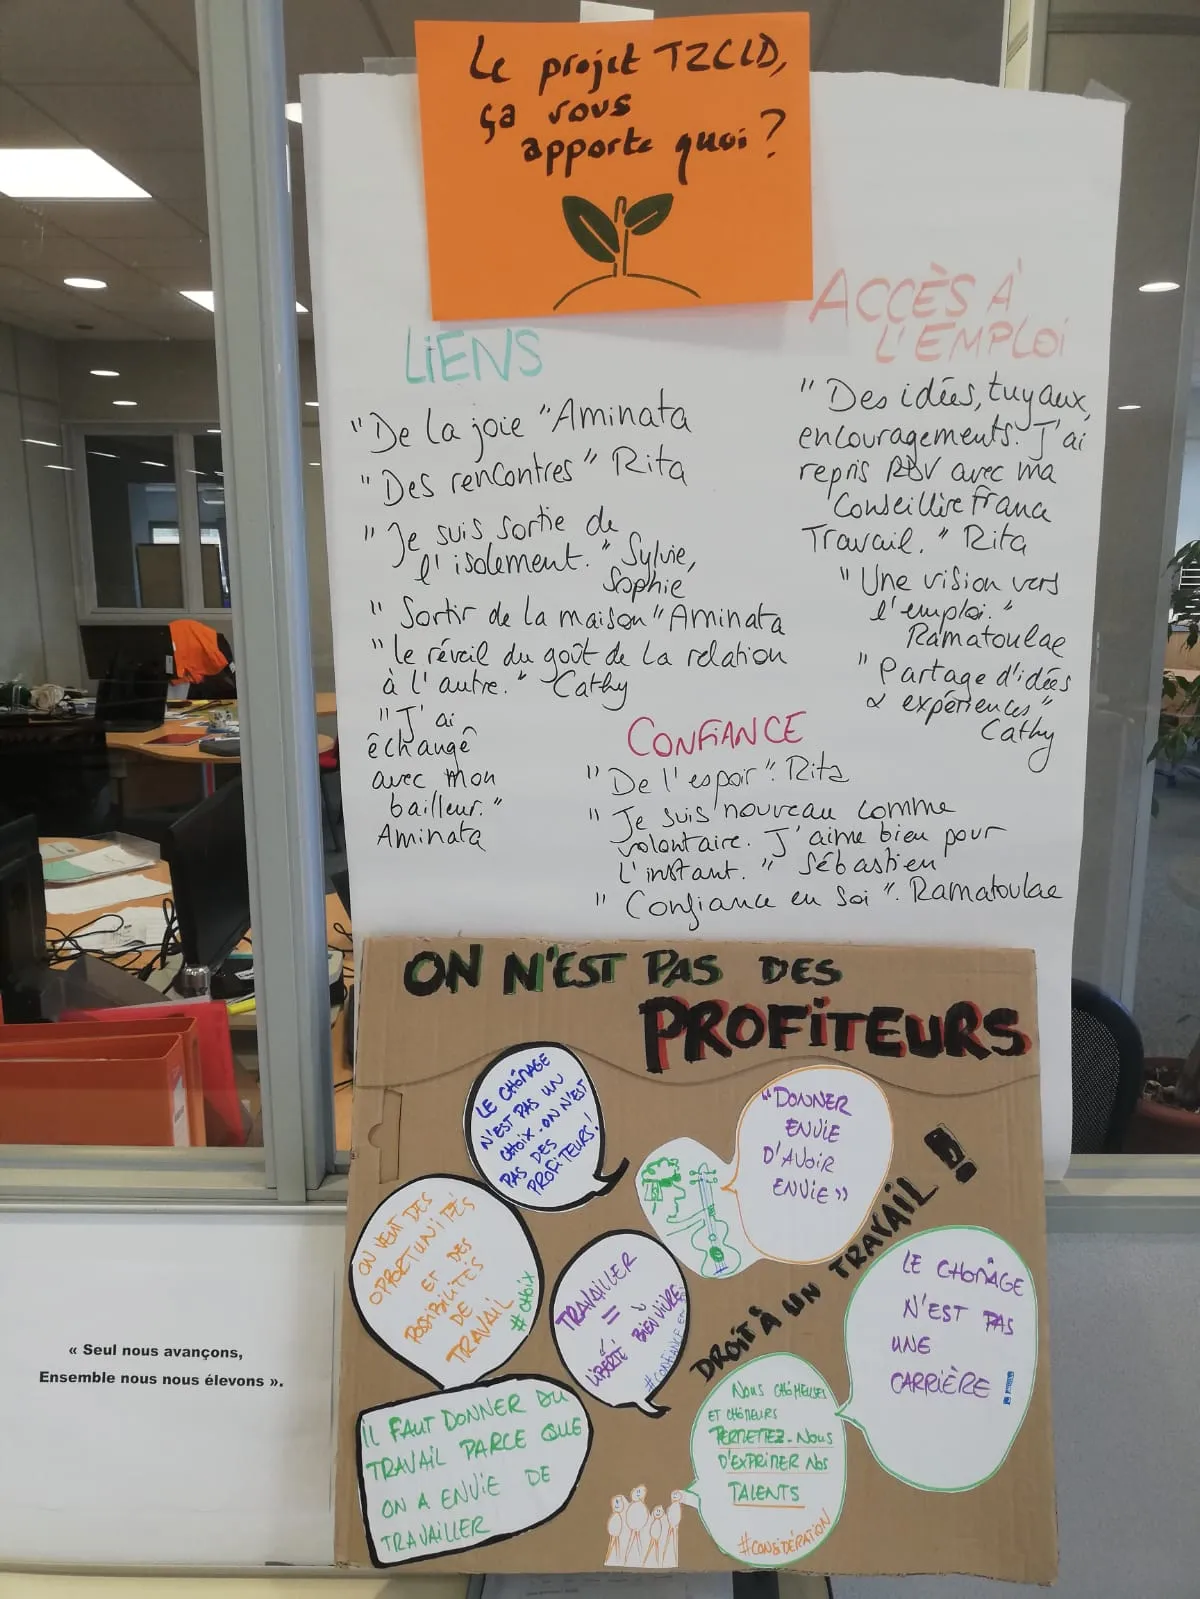 Le projet TZCLD,
ça vous
apporte quoi ?
LIENS
"De la joie" Aminata
"Des rencontres" Rita
"Je suis sortie de
l'isolement." Sylvie,
Sophie
"Sortir de la maison" Aminata
"Le réveil du goût de la relation
à l'autre." Cathy
"J'ai
échangé
avec mon
bailleur."
Aminata
ACCÈS À
L'EMPLOI
"Des idées, tuyaux,
encouragements. J'ai
repris RDV avec ma
Conseillère France
Travail." Rita
"Une vision vers
l'emploi."
Ramatoulae
"Partage d'idées
& expériences"
Cathy
CONFIANCE
"De l'espoir". Rita
"Je suis nouveau comme
volontaire. J'aime bien pour
l'instant." Sébastien
"Confiance en soi". Ramatoulae
ON N'EST PAS DES
PROFITEURS
LE CHÔMAGE
N'EST PAS UN
CHOIX. ON N'EST
PAS DES
PROFITEURS!
"DONNER
ENVIE
D'AVOIR
ENVIE"
ON VEUT DES
OPPORTUNITÉS
ET DES
POSSIBILITÉS
DE
TRAVAIL
#CHOIX
TRAVAILLER
=
LIBERTÉ BIEN VIVRE
#CONFIANCE EN SOI
DROIT À UN TRAVAIL !!
LE CHÔMAGE
N'EST PAS
UNE
CARRIÈRE !
IL FAUT DONNER DU
TRAVAIL PARCE QUE
ON A ENVIE DE
TRAVAILLER
NOUS CHÔMEUSES
ET CHÔMEURS
PERMETTEZ-NOUS
D'EXPRIMER NOS
TALENTS
#CONSIDÉRATION
« Seul nous avançons,
Ensemble nous nous élevons ».